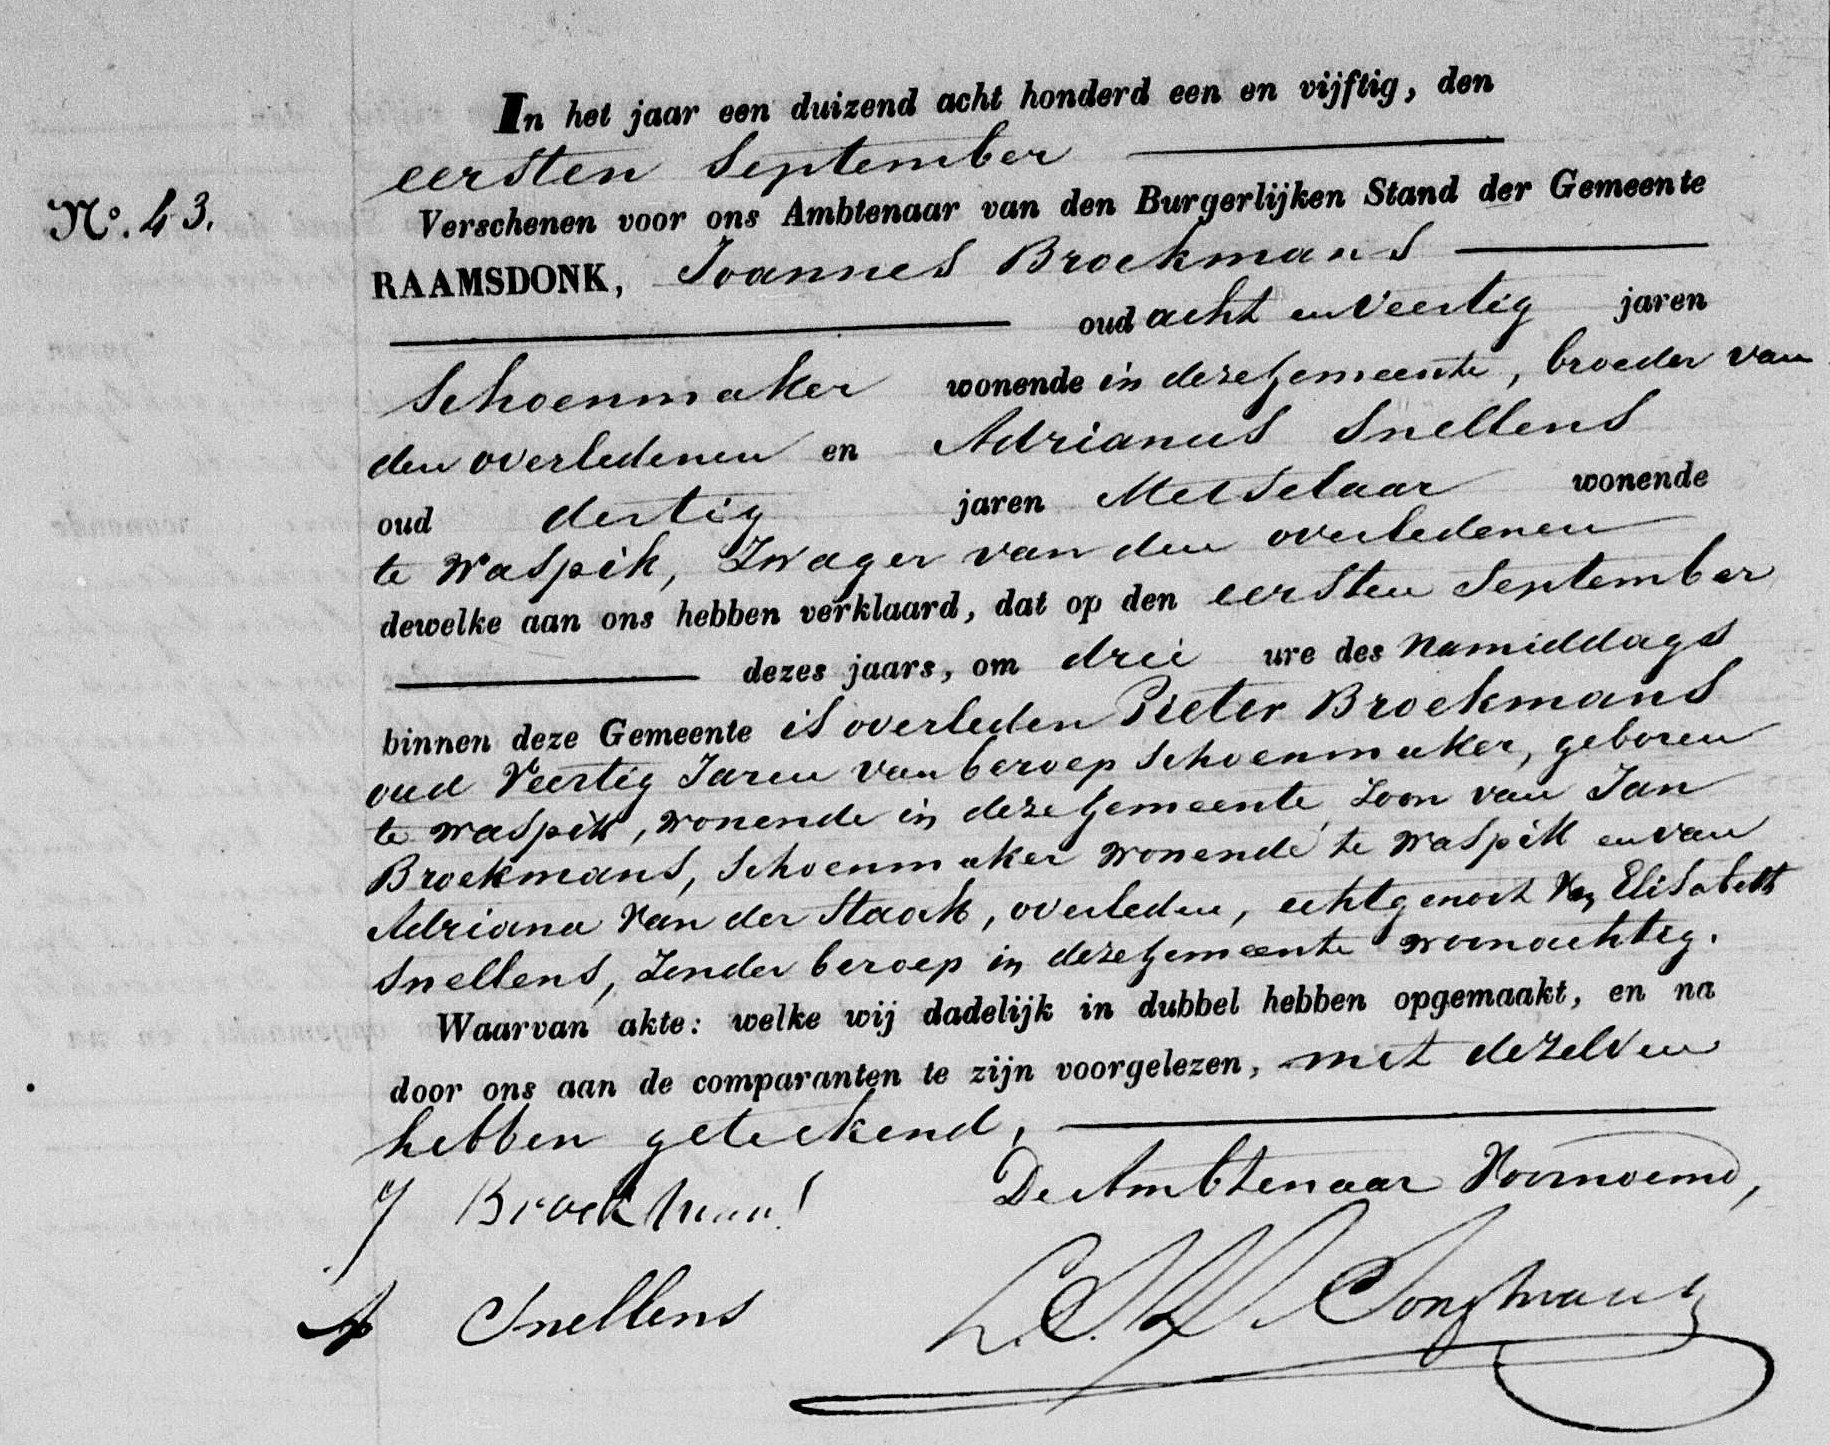 In het jaar een duizend acht honderd een en vijftig, den
eersten September
N°. 43.
Verschenen voor ons Ambtenaar van den Burgerlijken Stand der Gemeente
RAAMSDONK, Joannes Broekmans
oud acht en Veertig jaren
Schoenmaker wonende in deze Gemeente, broeder van
den overledenen en Adrianus Snellens
oud dertig jaren Metselaar wonende
te Waspik, Zwager van den overledenen
dewelke aan ons hebben verklaard, dat op den eersten September
dezes jaars, om drie ure des Namiddags
binnen deze Gemeente is overleden Pieter Broekmans
oud Veertig Jaren van beroep Schoenmaker, geboren
te Waspik, wonende in deze Gemeente, Zoon van Jan
Broekmans, Schoenmaker wonende te Waspik en van
Adriana Van der Staak, overleden, echtgenoot Van Elisabeth
Snellens, Zonder beroep in deze Gemeente woonachtig.
Waarvan akte: welke wij dadelijk in dubbel hebben opgemaakt, en na
door ons aan de comparanten te zijn voorgelezen, met dezelven
hebben geteekend.
De Ambtenaar Voornoemd,
J Broekmans
A Snellens